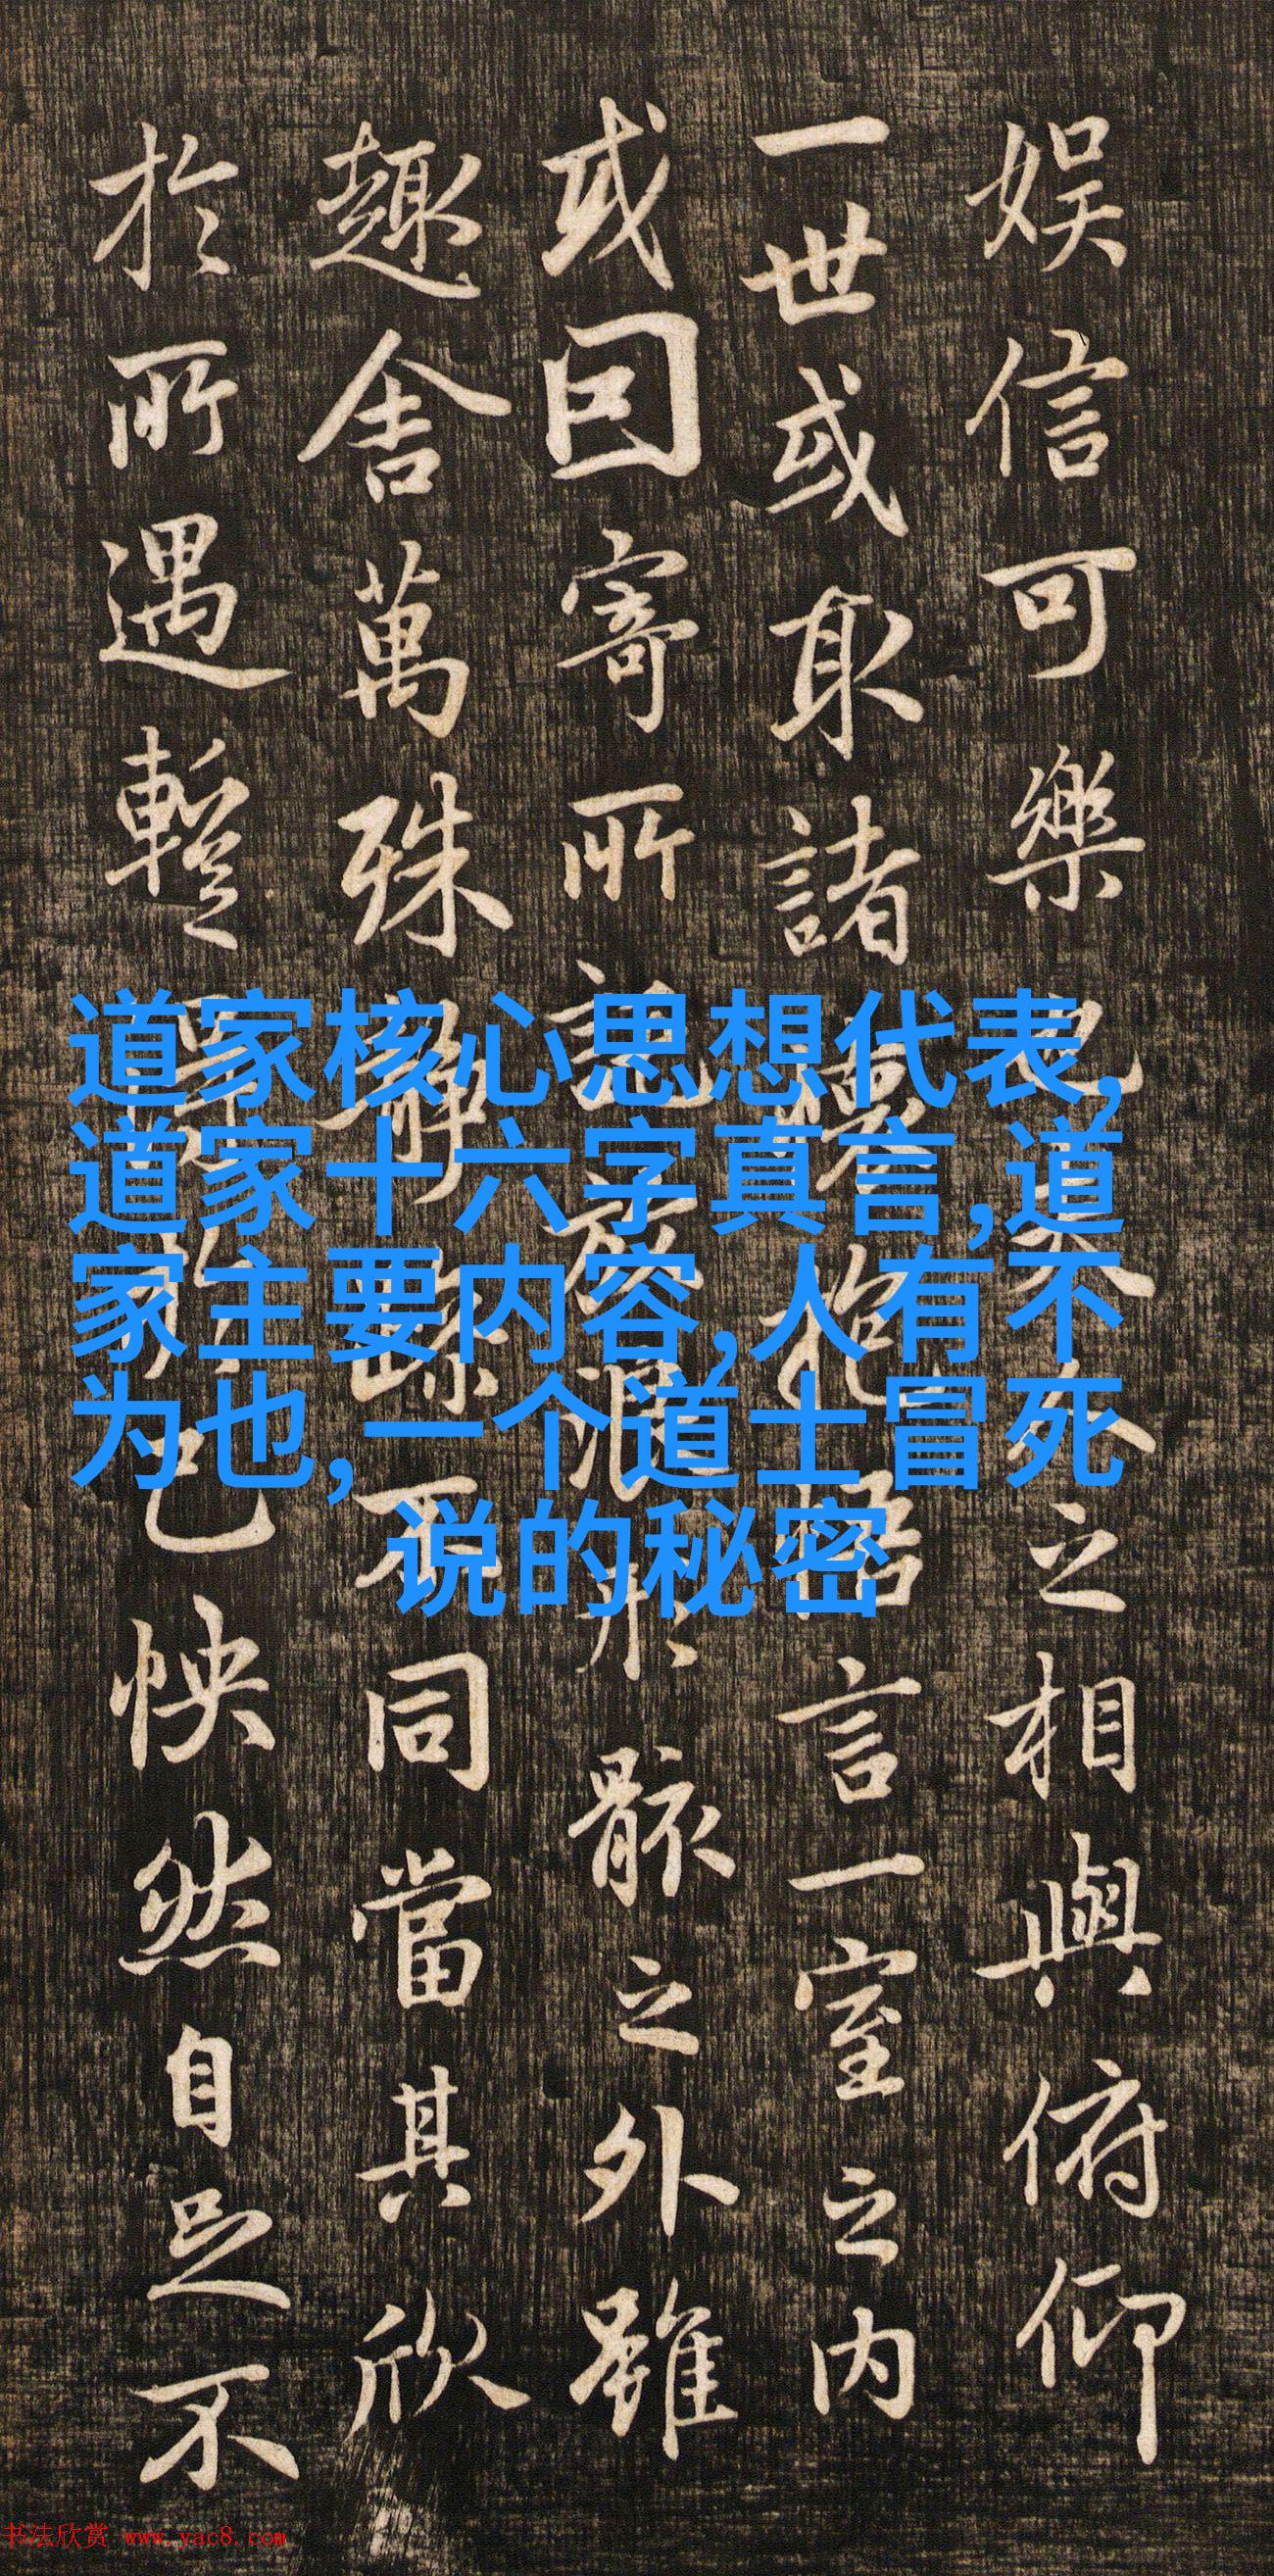 娱信可樂也夫人之相與俯仰
一世或取諸懷抱悟言一室之内
或因寄所託放浪形骸之外雖
趣舍萬殊靜躁不同當其欣
於所遇暫得於己怏然自足不
道家核心思想代表,
道家十六字真言,道
家主要内容,人有不
为也,一个道士冒死
说的秘密
书法欣赏 www.yac8.com